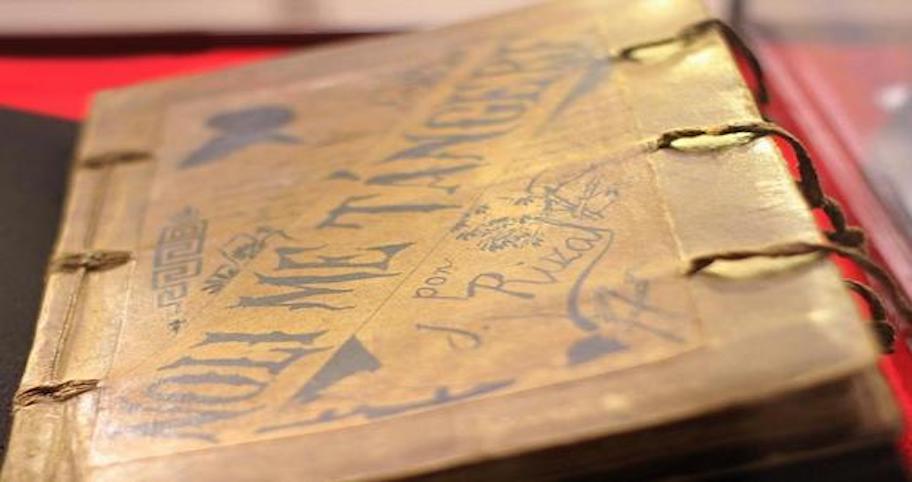 NOLI ME TÁNGERE
por
J. Rizal